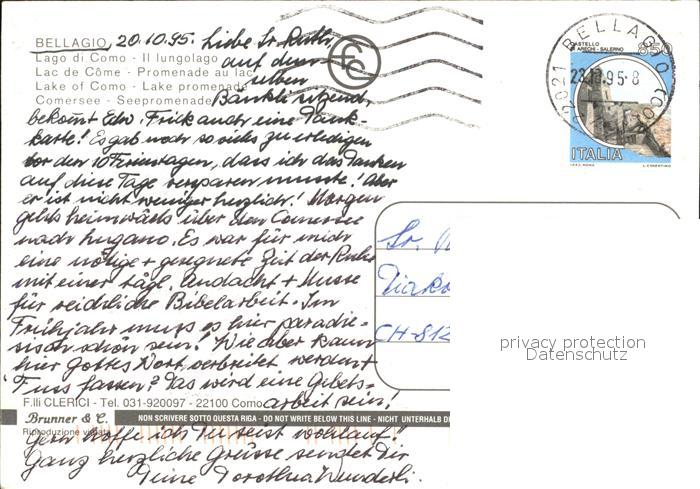 BELLAGIO, 20.10.95. Liebe Sr. Ruth,
Lago di Como - Il lungolago auf dem
Lac de Côme - Promenade au lac
Lake of Como - Lake promenade
Comersee - Seepromenade
Bänkli sitzend,
bekommt Edw. Frick auch eine Dank-
karte! Es gab noch so vieles zu erledigen
vor den 10 Ferientagen, dass ich das Danken
auf diese Tage versparen musste! Aber
er ist nicht weniger herzlich! Morgen
gehts heimwärts über den Comersee
nach Lugano. Es war für mich
eine nötige + gesegnete Zeit der Ruhe
mit einer tägl. Andacht + Musse
für reichliche Bibelarbeit. Im
Frühjahr muss es hier paradie-
sisch schön sein! Wie aber kann
hier Gottes Wort verbreitet werden +
Fuss fassen? Das wird eine Gebets-
F.lli CLERICI - Tel. 031-920097 - 22100 Como arbeit sein!
Brunner & C. NON SCRIVERE SOTTO QUESTA RIGA - DO NOT WRITE BELOW THIS LINE - NICHT UNTERHALB D
Riproduzione vietata
Gern hoffe ich Du seist wohlauf!
Ganz herzliche Grüsse sendet Dir
Deine Dorothea Wunderli.
CASTELLO
DI ARECHI - SALERNO
850
ITALIA
I.P.Z.S. ROMA
22021 BELLAGIO (CO)
95-8
Sr.
Diako
CH-812
privacy protection
Datenschutz